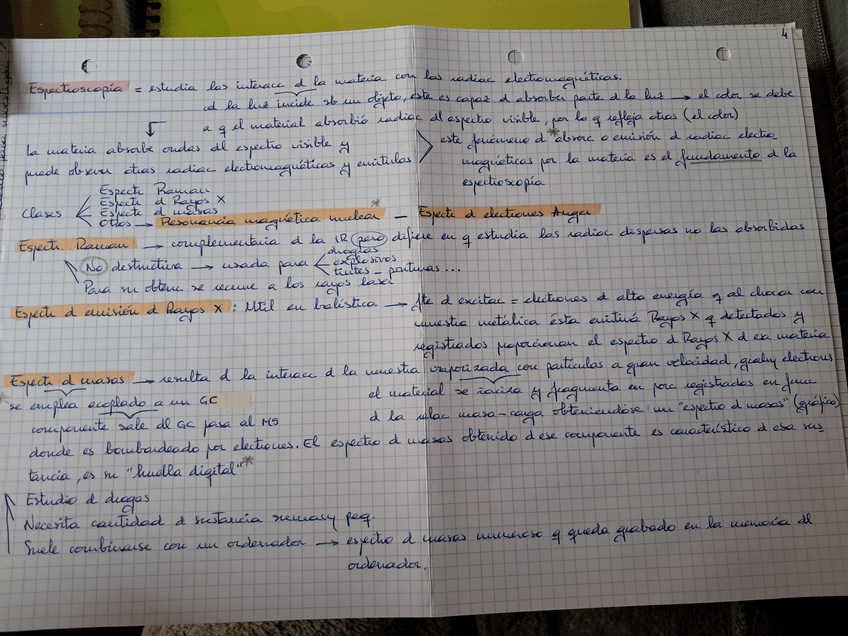 4
Espectroscopía = estudia las interacc d la materia con las radiac electromagnéticas.
cd la luz incide sb un objeto, éste es capaz d absorber parte d la luz → el color se debe
a q el material absorbió radiac dl espectro visible, por lo q refleja otras (el color)
La materia absorbe ondas dl espectro visible y
puede observ otras radiac electromagnéticas y emitirlas
este fenómeno d absorc o emisión d radiac electro
magnéticas por la materia es el fundamento d la
espectroscopía
Clases
Espectr Raman
Espectr d Rayos X
Espectr d masas
Otros → Resonancia magnética nuclear * – Espectr d electrones Auger
Espectr Raman → complementaria d la IR pero difiere en q estudia las radiac dispersas no las absorbidas
No destructiva → usada para
drogas
explosivos
tintes – pinturas ...
Para su obtenc se recurre a los rayos laser
Espectr d emisión d Rayos X : Util en balística → fte d excitac = electrones d alta energía q al chocar con
muestra metálica ésta emitirá Rayos X q detectados y
registrados proporcionan el espectro d Rayos X d esa materia
Espectr d masas → resulta d la interacc d la muestra vaporizada con partículas a gran velocidad, electrones
el material se ioniza y fragmenta en registradas en func
d la relac masa-carga obteniendose un "espectro d masas" (gráfico)
se emplea acoplado a un GC
componente sale dl GC pasa al MS
donde es bombardeado por electrones. El espectro d masas obtenido d ese componente es característico d esa sus
tancia, es su "huella digital" *
Estudio d drogas
Necesita cantidad d sustancia peq.
Suele combinarse con un ordenador → espectro d masas numeroso q queda grabado en la memoria dl
ordenador.